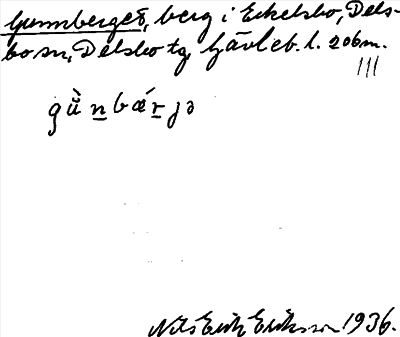 Gunnberget, berg i Eckelsbo, Dels-
bo sn, Delsbo tg, Gävleb. l. 206m.
111
gù̈nbǽrjə
Nils Erik Eriksson 1936.